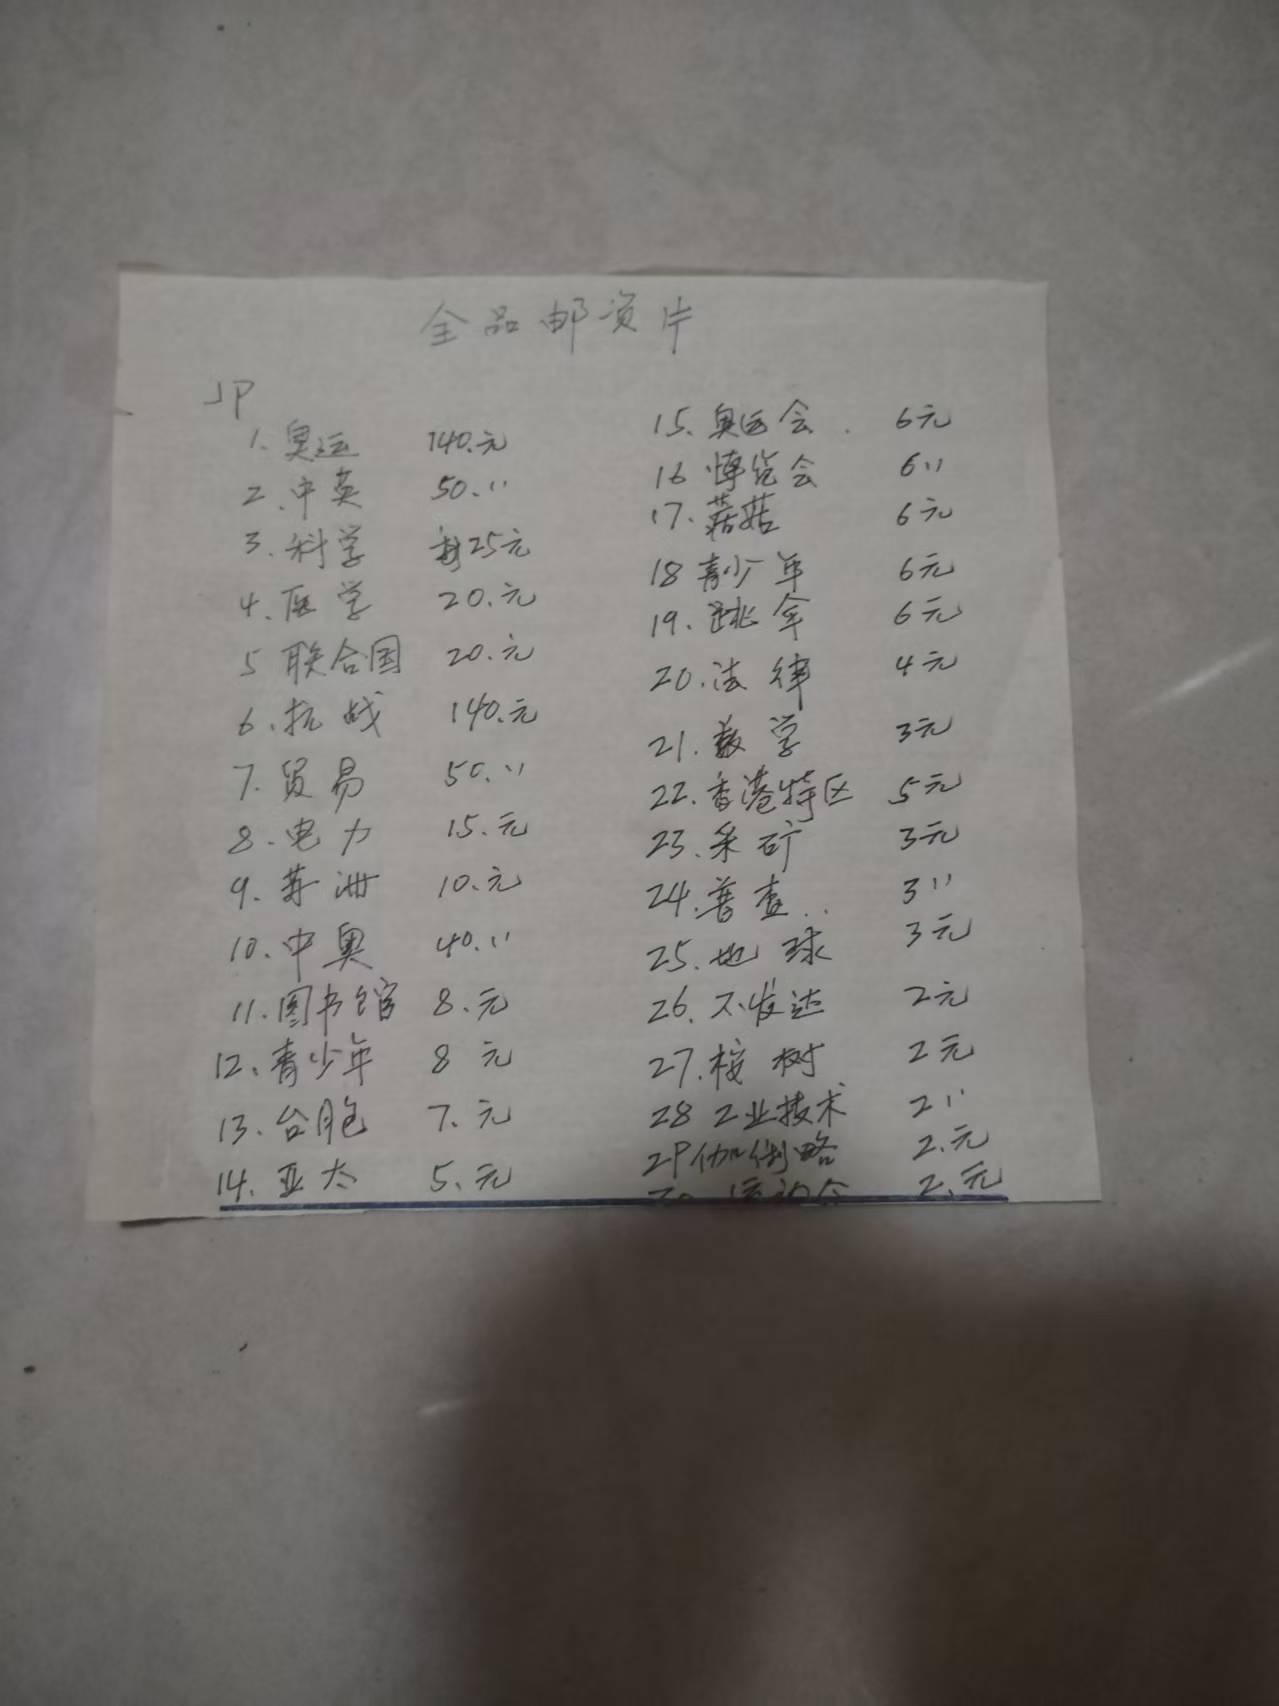 全品邮资片
JP
1. 奥运 140.元
2. 中英 50.〃
3. 科学 25元
4. 医学 20.元
5 联合国 20.元
6. 抗战 140.元
7. 贸易 50.〃
8. 电力 15.元
9. 10.元
10. 中奥 40.〃
11. 图书馆 8.元
12. 青少年 8元
13. 台胞 7.元
14. 亚太 5.元
15. 奥运会. 6元
16 博览会 6〃
17. 菇 6元
18 青少年 6元
19. 跳伞 6元
20. 法律 4元
21. 数学 3元
22. 香港特区 5元
23. 采矿 3元
24. 普查.. 3〃
25. 地球 3元
26. 不发达 2元
27. 桉树 2元
28 工业技术 2〃
29 伽利略 2.元
30 运动会 2.元